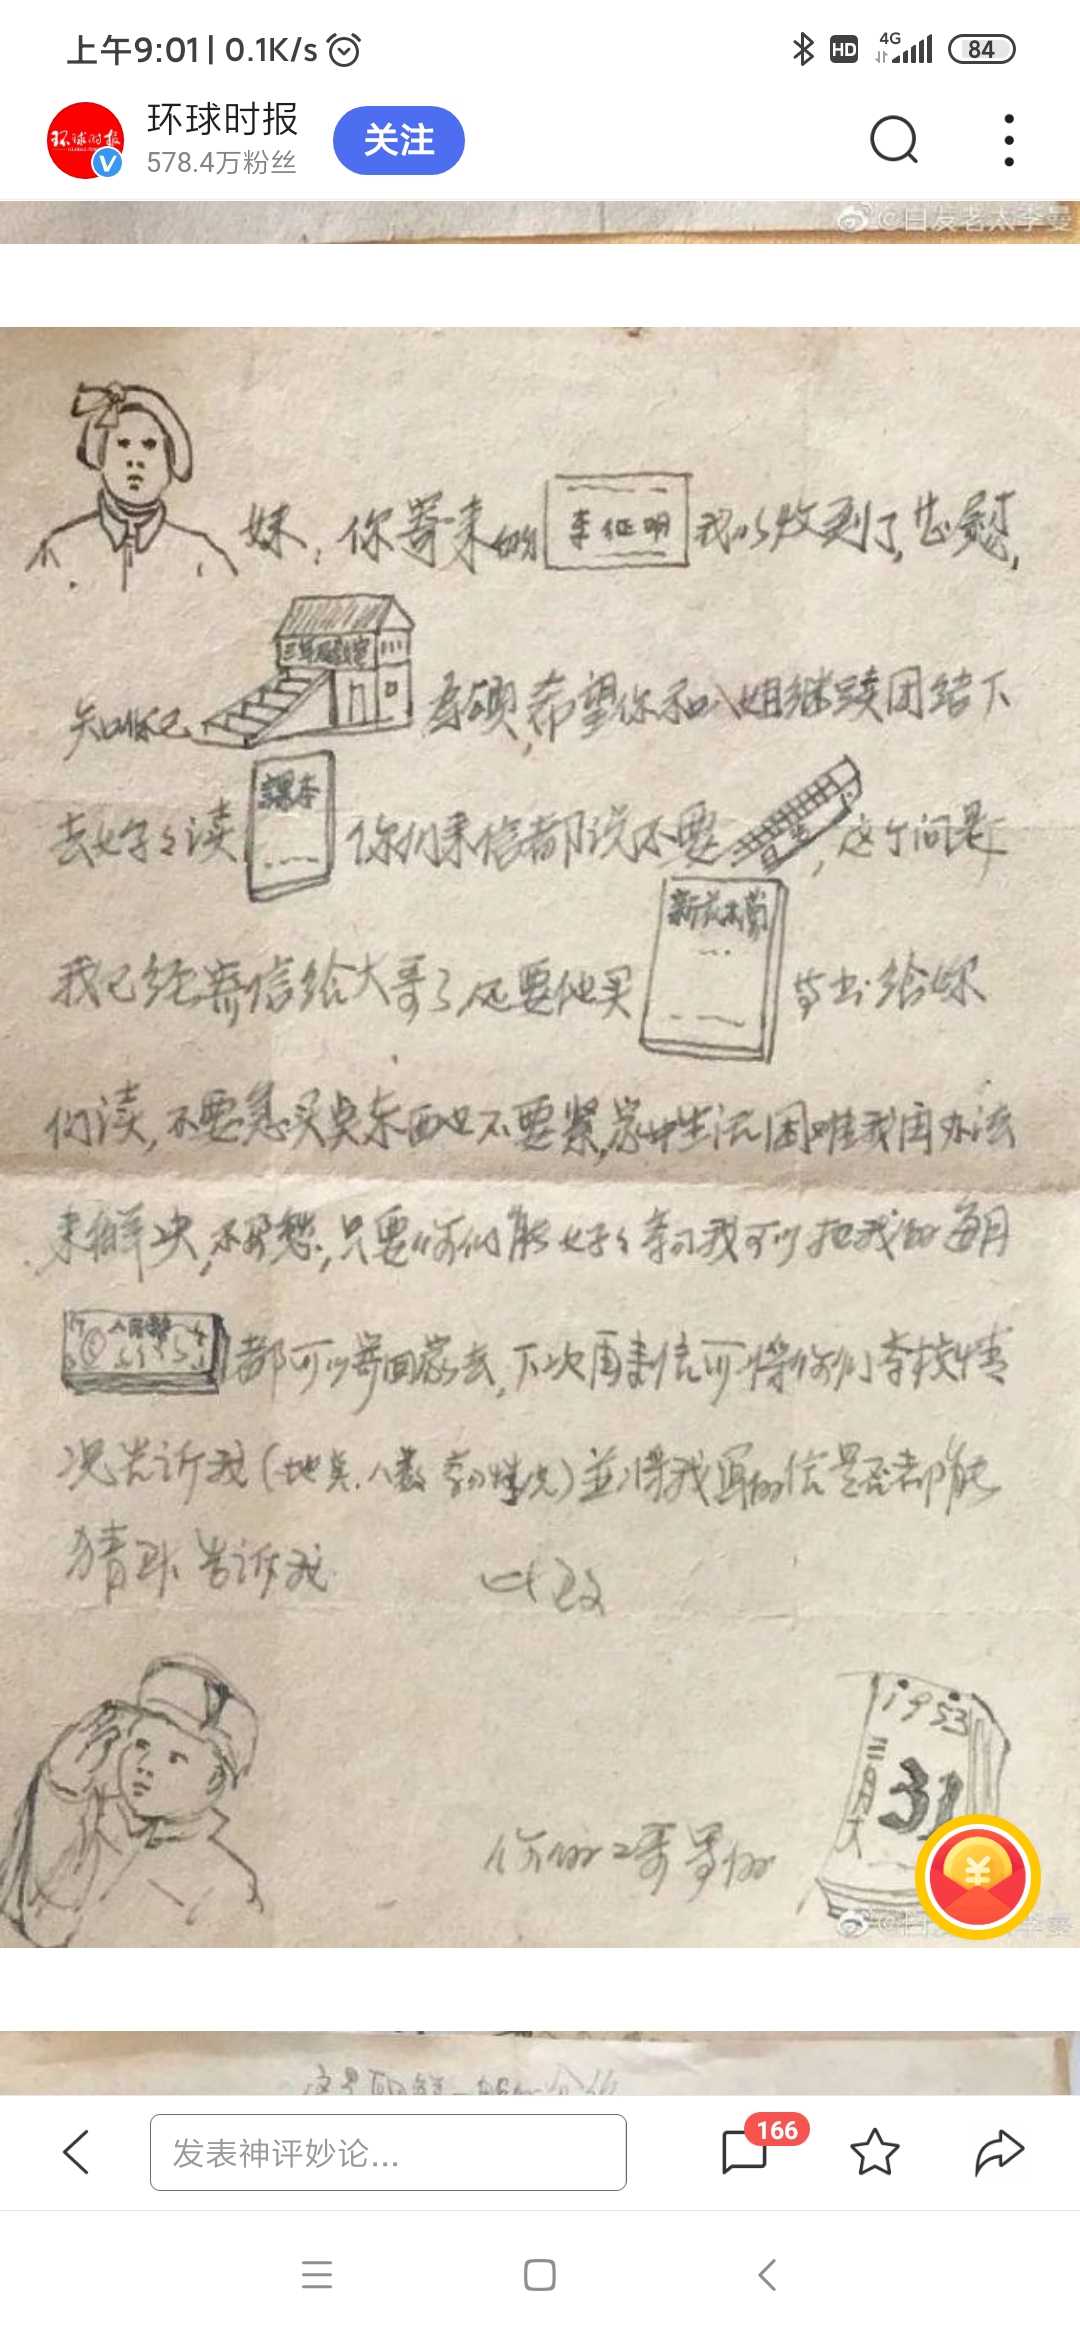 上午9:01 | 0.1K/s
HD 4G 84
环球时报
578.4万粉丝
关注
环球时报
@白发老太李曼
妹，你寄来的 李征明 我以收到了，
三年级教室
希望你和八姐继续团结下
去好好读 課本 你们来信都说不要 这个问是
我已经寄信给大哥了，还要他买 等书给妳
们读，不要急买点东西也不要紧，家中生活困难我再办法
来解决，不要愁，只要你们能好好学习我可以把我的每月
人民 都可以寄回家去，下次再来信可将你们学校情
况告诉我（地点．人数 学习情况）並将我写的信是否都能
猜 告诉我
此致
1953
三月大
31
你的二哥
发表神评妙论...
166